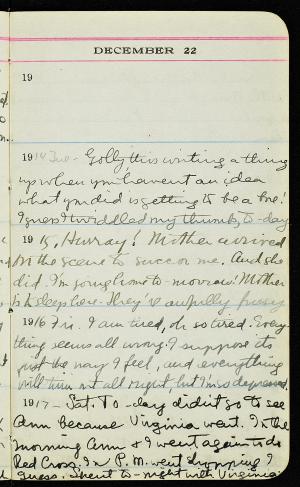 DECEMBER 22
19
1914 Tue - Golly this writing a thing
up when you haven't an idea
what you did is getting to be a bore!
I guess I twiddled my thumbs, to-day
1915, Hurray! Mother arrived
on the scene to succor me. And she
did. I'm going home to-morrow! Mother
is asleep here - They're awfully fussy
1916 Fri. I am tired, oh so tired. Every
thing seems all wrong. I suppose its
just the way I feel, and everything
will turn out all right, but I'm so depressed.
1917 - Sat. To-day didnt go to see
Ann because Virginia went. In the
morning Ann & I went again to do
Red Cross. In P.M. went shopping I
guess. Spent to-night with Virginia